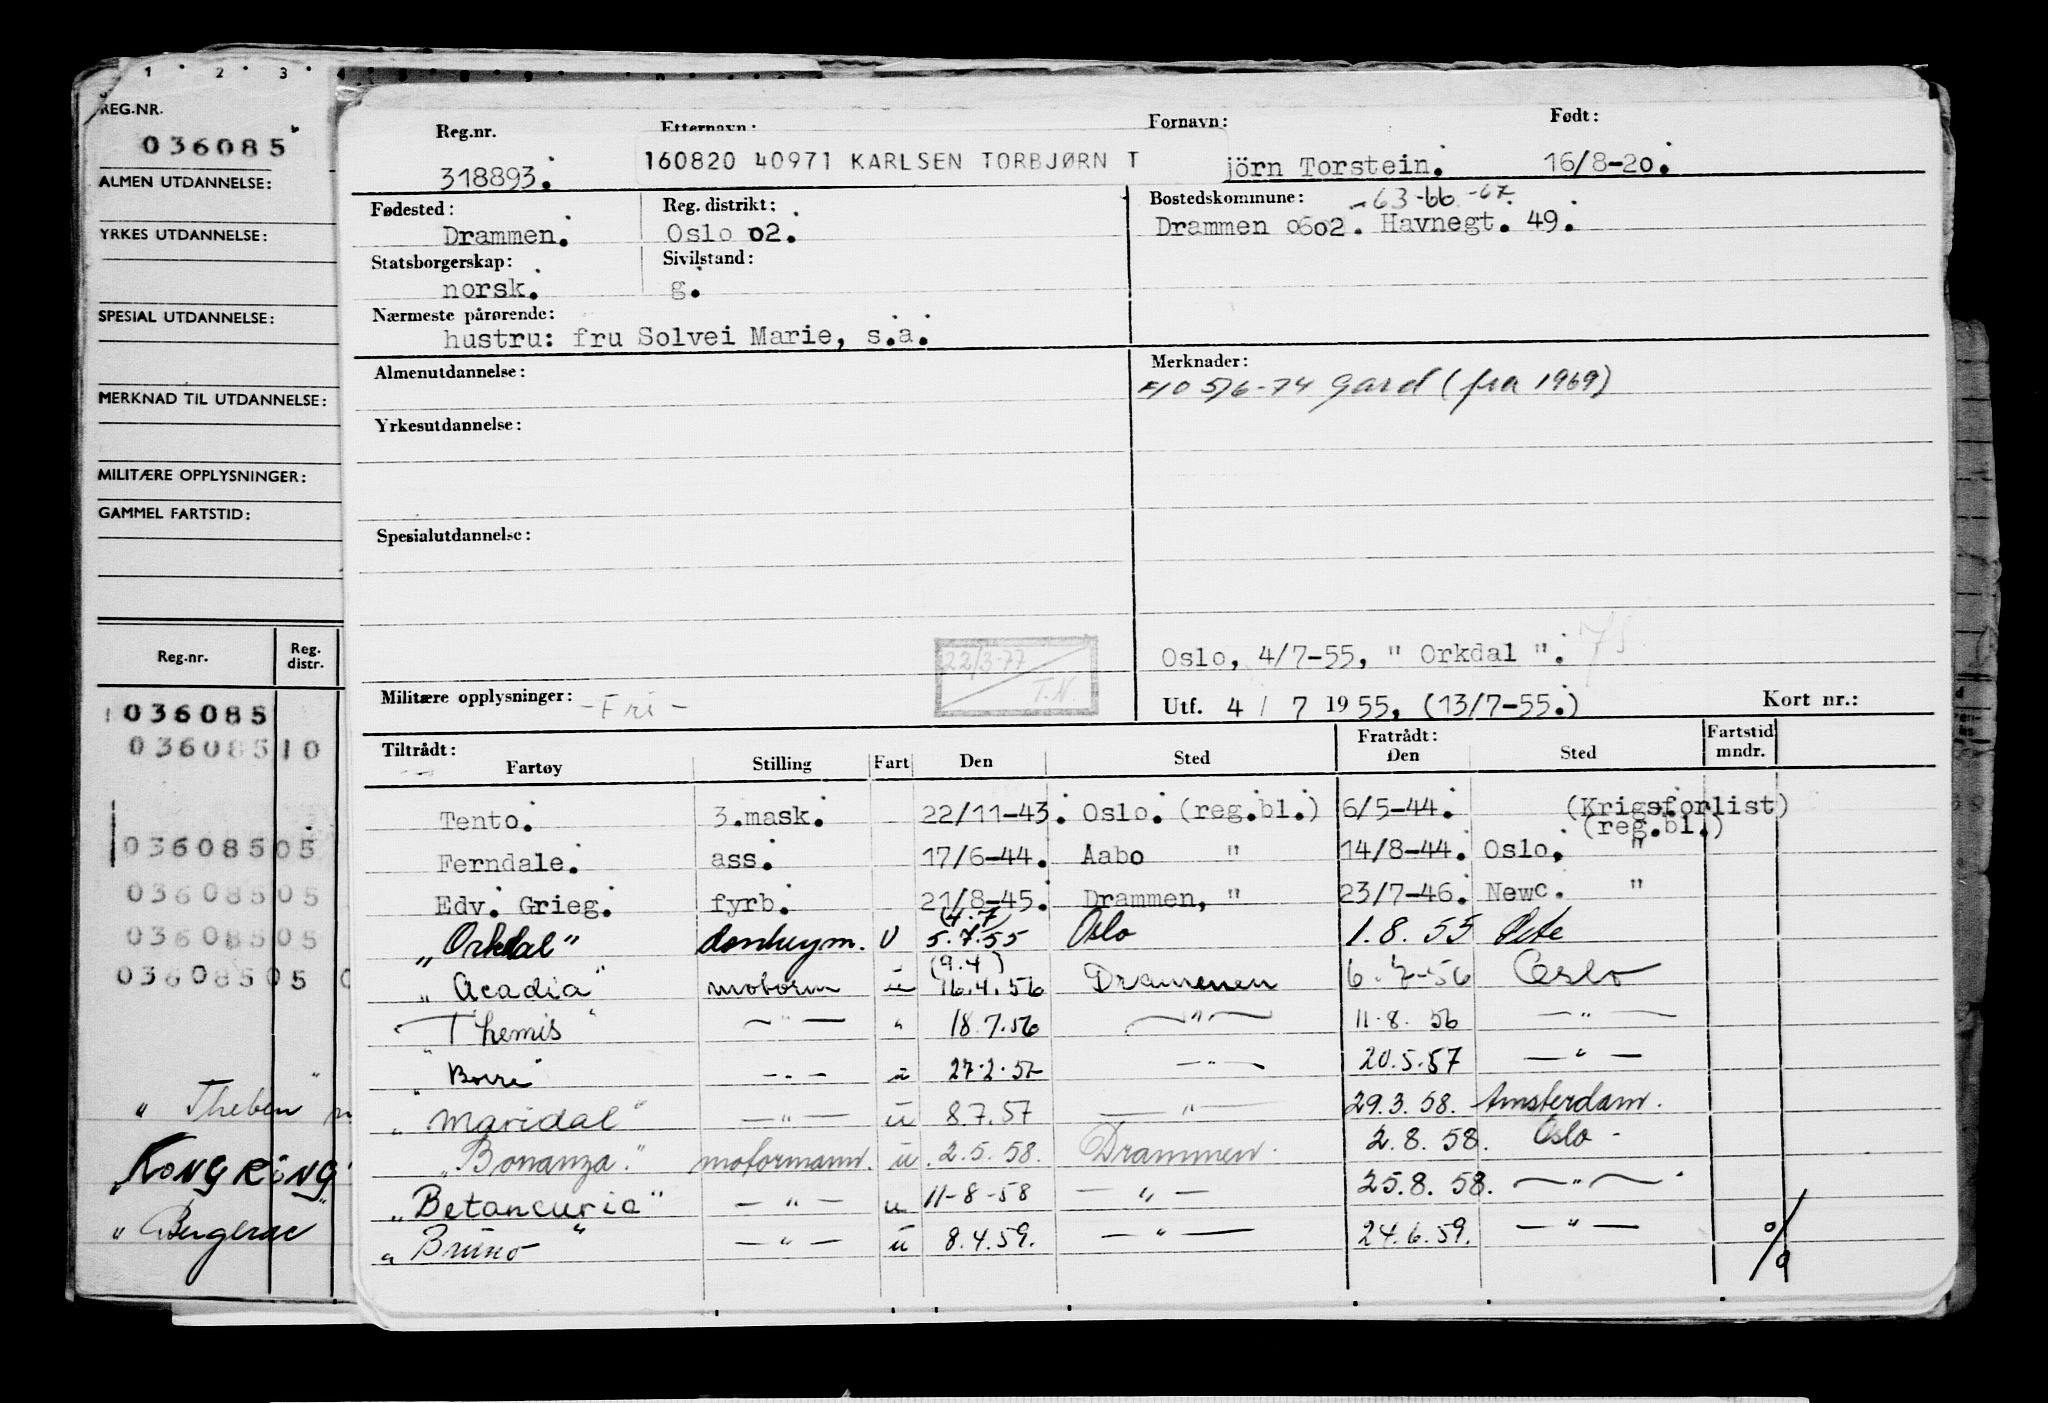 1 2 3 4
REG.NR.
036085
ALMEN UTDANNELSE:
YRKES UTDANNELSE:
SPESIAL UTDANNELSE:
MERKNAD TIL UTDANNELSE:
MILITÆRE OPPLYSNINGER:
GAMMEL FARTSTID:
Reg.nr. Reg. distr.
036085
036085 10
036085 05
036085 05
036085 05
036085 05 0
" Theben "
"KONGRING"
" Bergerac "
Reg.nr. Etternavn: Fornavn: Født:
318893. 160820 40971 KARLSEN TORBJØRN T jörn Torstein. 16/8-20.
Fødested: Reg. distrikt: Bostedskommune: -63-66-67
Drammen. Oslo 02. Drammen 0602. Havnegt. 49.
Statsborgerskap: Sivilstand:
norsk. g.
Nærmeste pårørende:
hustru: fru Solvei Marie, s.a.
Almenutdannelse: Merknader:
5/6-74 Gard (fra 1969)
Yrkesutdannelse:
Spesialutdannelse:
22/3-77
T.N.
Oslo, 4/7-55, " Orkdal ".
Militære opplysninger: -Fri-
Utf. 4 / 7 1955, (13/7-55.) Kort nr.:
Tiltrådt: Fratrådt: Fartstid
Fartøy Stilling Fart Den Sted Den Sted mndr.
Tento. 3.mask. 22/11-43. Oslo. (reg.bl.) 6/5-44. (Krigsforlist)
(reg.bl.)
Ferndale. ass. 17/6-44. Aabo " 14/8-44. Oslo. "
Edv. Grieg. fyrb. 21/8-45. Drammen, " 23/7-46. Newc. "
(4.7)
"Orkdal" donkeym. U 5.7.55 Oslo 1.8.55
(9.4)
"Acadia" motorm u 16.4.56 Drammen 6.7-56 Oslo
"Themis" — " — " 18.7.56 — " — 11.8.56 — " —
"Borre" — " — u 27.2.57 — " — 20.5.57 — " —
"Maridal" — " — u 8.7.57 — " — 29.3.58. Amsterdam.
"Bonanza." motormann. u. 2.5.58. Drammen. 2.8.58. Oslo.
"Betancuria" — " — u 11-8-58 — " — 25.8.58. — " —
"Bruno" — " — u 8.4.59. — " — 24.6.59. — " — %